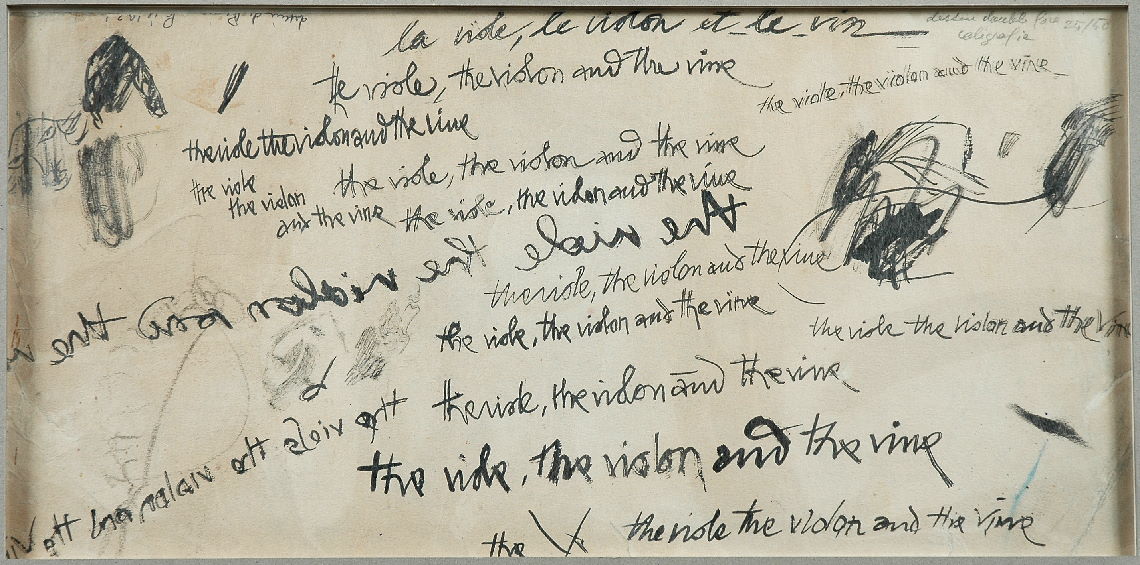 dessin double face 25/50
caligrafia
la viole, le violon et le vin
the viole, the violon and the vine
the viole, the violon and the vine
the viole the violon and the vine
the viole, the violon and the vine
the viole
the violon
and the vine
the viole, the violon and the vine
the viole the violon and the
the viole, the violon and the vine
the viole, the violon and the vine
the viole the violon and the vine
the viole, the violon and the vine
the viole the violon and the
the viole, the violon and the vine
the viole the violon and the vine
the